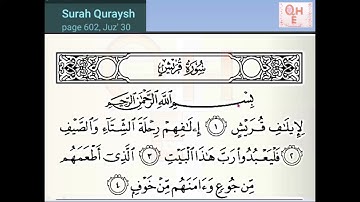 Surah Quraysh
page 602, Juz' 30
QHE
سُورَةُ قُرَيْشٍ
بِسْمِ اللَّهِ الرَّحْمَٰنِ الرَّحِيمِ
لِإِيلَافِ قُرَيْشٍ ١ إِۦلَافِهِمْ رِحْلَةَ الشِّتَاءِ وَالصَّيْفِ
٢ فَلْيَعْبُدُوا رَبَّ هَٰذَا الْبَيْتِ ٣ الَّذِي أَطْعَمَهُم
مِّن جُوعٍ وَءَامَنَهُم مِّنْ خَوْفٍ ٤